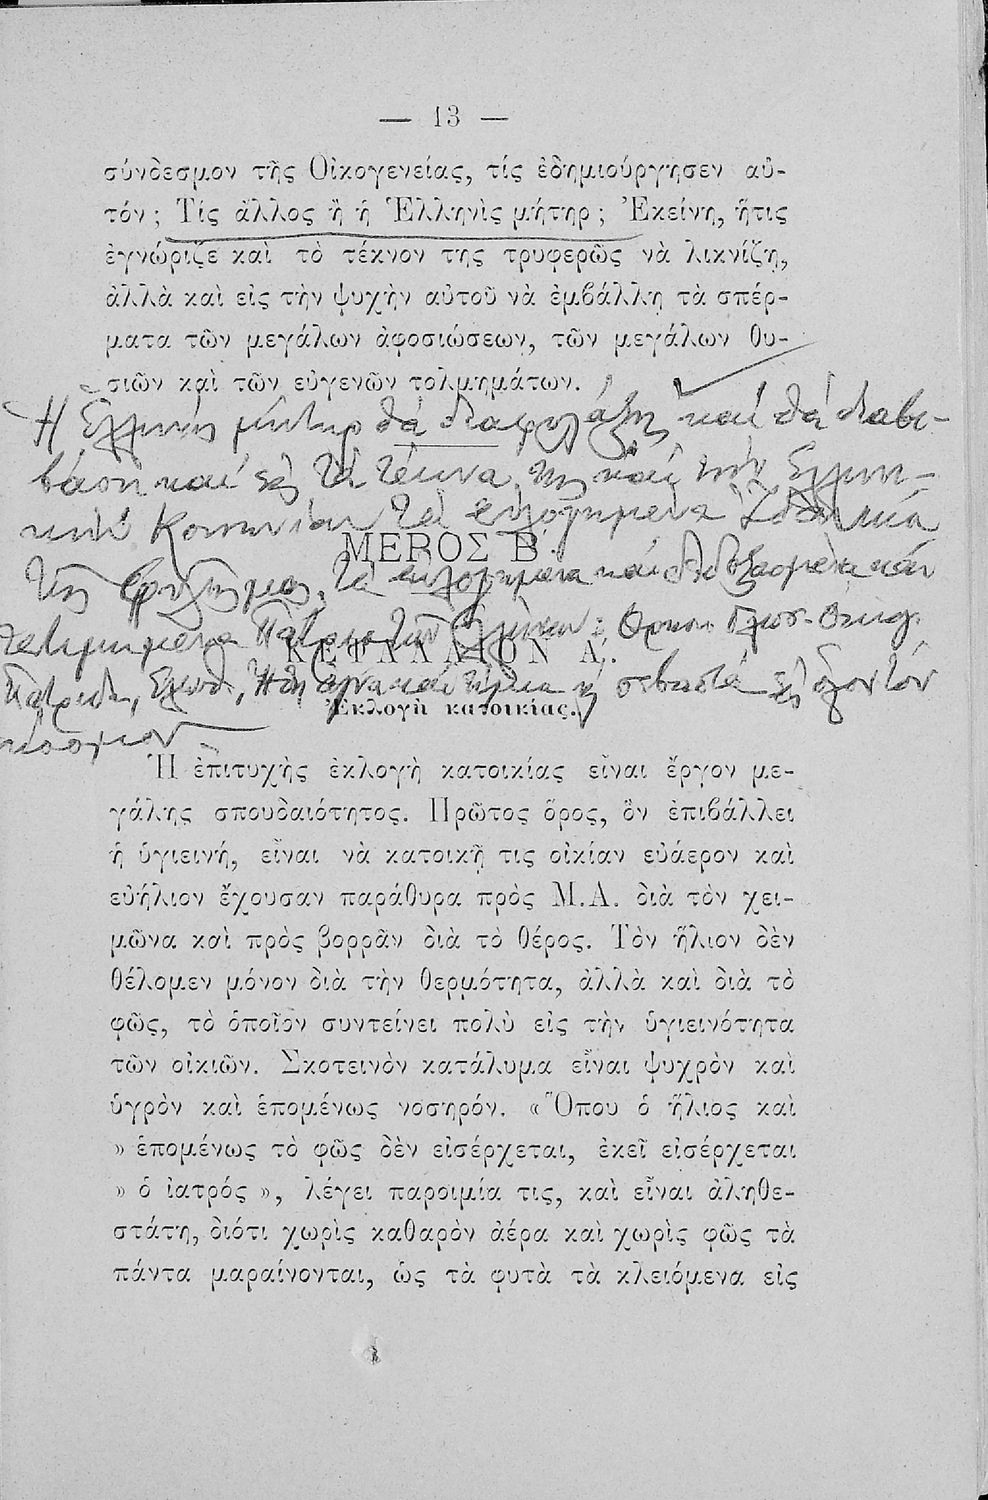 — 13 —
σύνδεσμον τῆς Οἰκογενείας, τίς ἐδημιούργησεν αὐ-
τόν; Τίς ἄλλος ἢ ἡ Ἑλληνὶς μήτηρ; Ἐκείνη, ἥτις
ἐγνώριζε καὶ τὸ τέκνον της τρυφερῶς νὰ λικνίζῃ,
ἀλλὰ καὶ εἰς τὴν ψυχὴν αὐτοῦ νὰ ἐμβάλλῃ τὰ σπέρ-
ματα τῶν μεγάλων ἀφοσιώσεων, τῶν μεγάλων θυ-
σιῶν καὶ τῶν εὐγενῶν τολμημάτων.
Ἡ Ἑλληνὶς μήτηρ θὰ διαφυλάξῃ καὶ θὰ διαβι-
βάσῃ καὶ εἰς τὰ τέκνα της καὶ τὴν Ἑλλην-
ικὴν Κοινωνίαν τὰ εὐλογημένα Ἰδανικὰ
ΜΕΡΟΣ Β΄.
τῆς φυλῆς μας, τὰ εὐλογημένα καὶ δεδοξασμένα καὶ
τετιμημένα Πάτρια τῶν Ἑλλήνων: Θρησκ. Γλωσ. Οἰκογ.
ΚΕΦΑΛΑΙΟΝ Α΄.
Πατρίδα, Ἐλευθ., Ἤθη ἁγνὰ καὶ τίμια κ σεβαστὰ εἰς ὅλον τὸν
Ἐκλογὴ κατοικίας.
κόσμον
Ἡ ἐπιτυχὴς ἐκλογὴ κατοικίας εἶναι ἔργον με-
γάλης σπουδαιότητος. Πρῶτος ὅρος, ὃν ἐπιβάλλει
ἡ ὑγιεινή, εἶναι νὰ κατοικῇ τις οἰκίαν εὐάερον καὶ
εὐήλιον ἔχουσαν παράθυρα πρὸς Μ.Α. διὰ τὸν χει-
μῶνα καὶ πρὸς βορρᾶν διὰ τὸ θέρος. Τὸν ἥλιον δὲν
θέλομεν μόνον διὰ τὴν θερμότητα, ἀλλὰ καὶ διὰ τὸ
φῶς, τὸ ὁποῖον συντείνει πολὺ εἰς τὴν ὑγιεινότητα
τῶν οἰκιῶν. Σκοτεινὸν κατάλυμα εἶναι ψυχρὸν καὶ
ὑγρὸν καὶ ἑπομένως νοσηρόν. «Ὅπου ὁ ἥλιος καὶ
» ἑπομένως τὸ φῶς δὲν εἰσέρχεται, ἐκεῖ εἰσέρχεται
» ὁ ἰατρός», λέγει παροιμία τις, καὶ εἶναι ἀληθε-
στάτη, διότι χωρὶς καθαρὸν ἀέρα καὶ χωρὶς φῶς τὰ
πάντα μαραίνονται, ὡς τὰ φυτὰ τὰ κλειόμενα εἰς